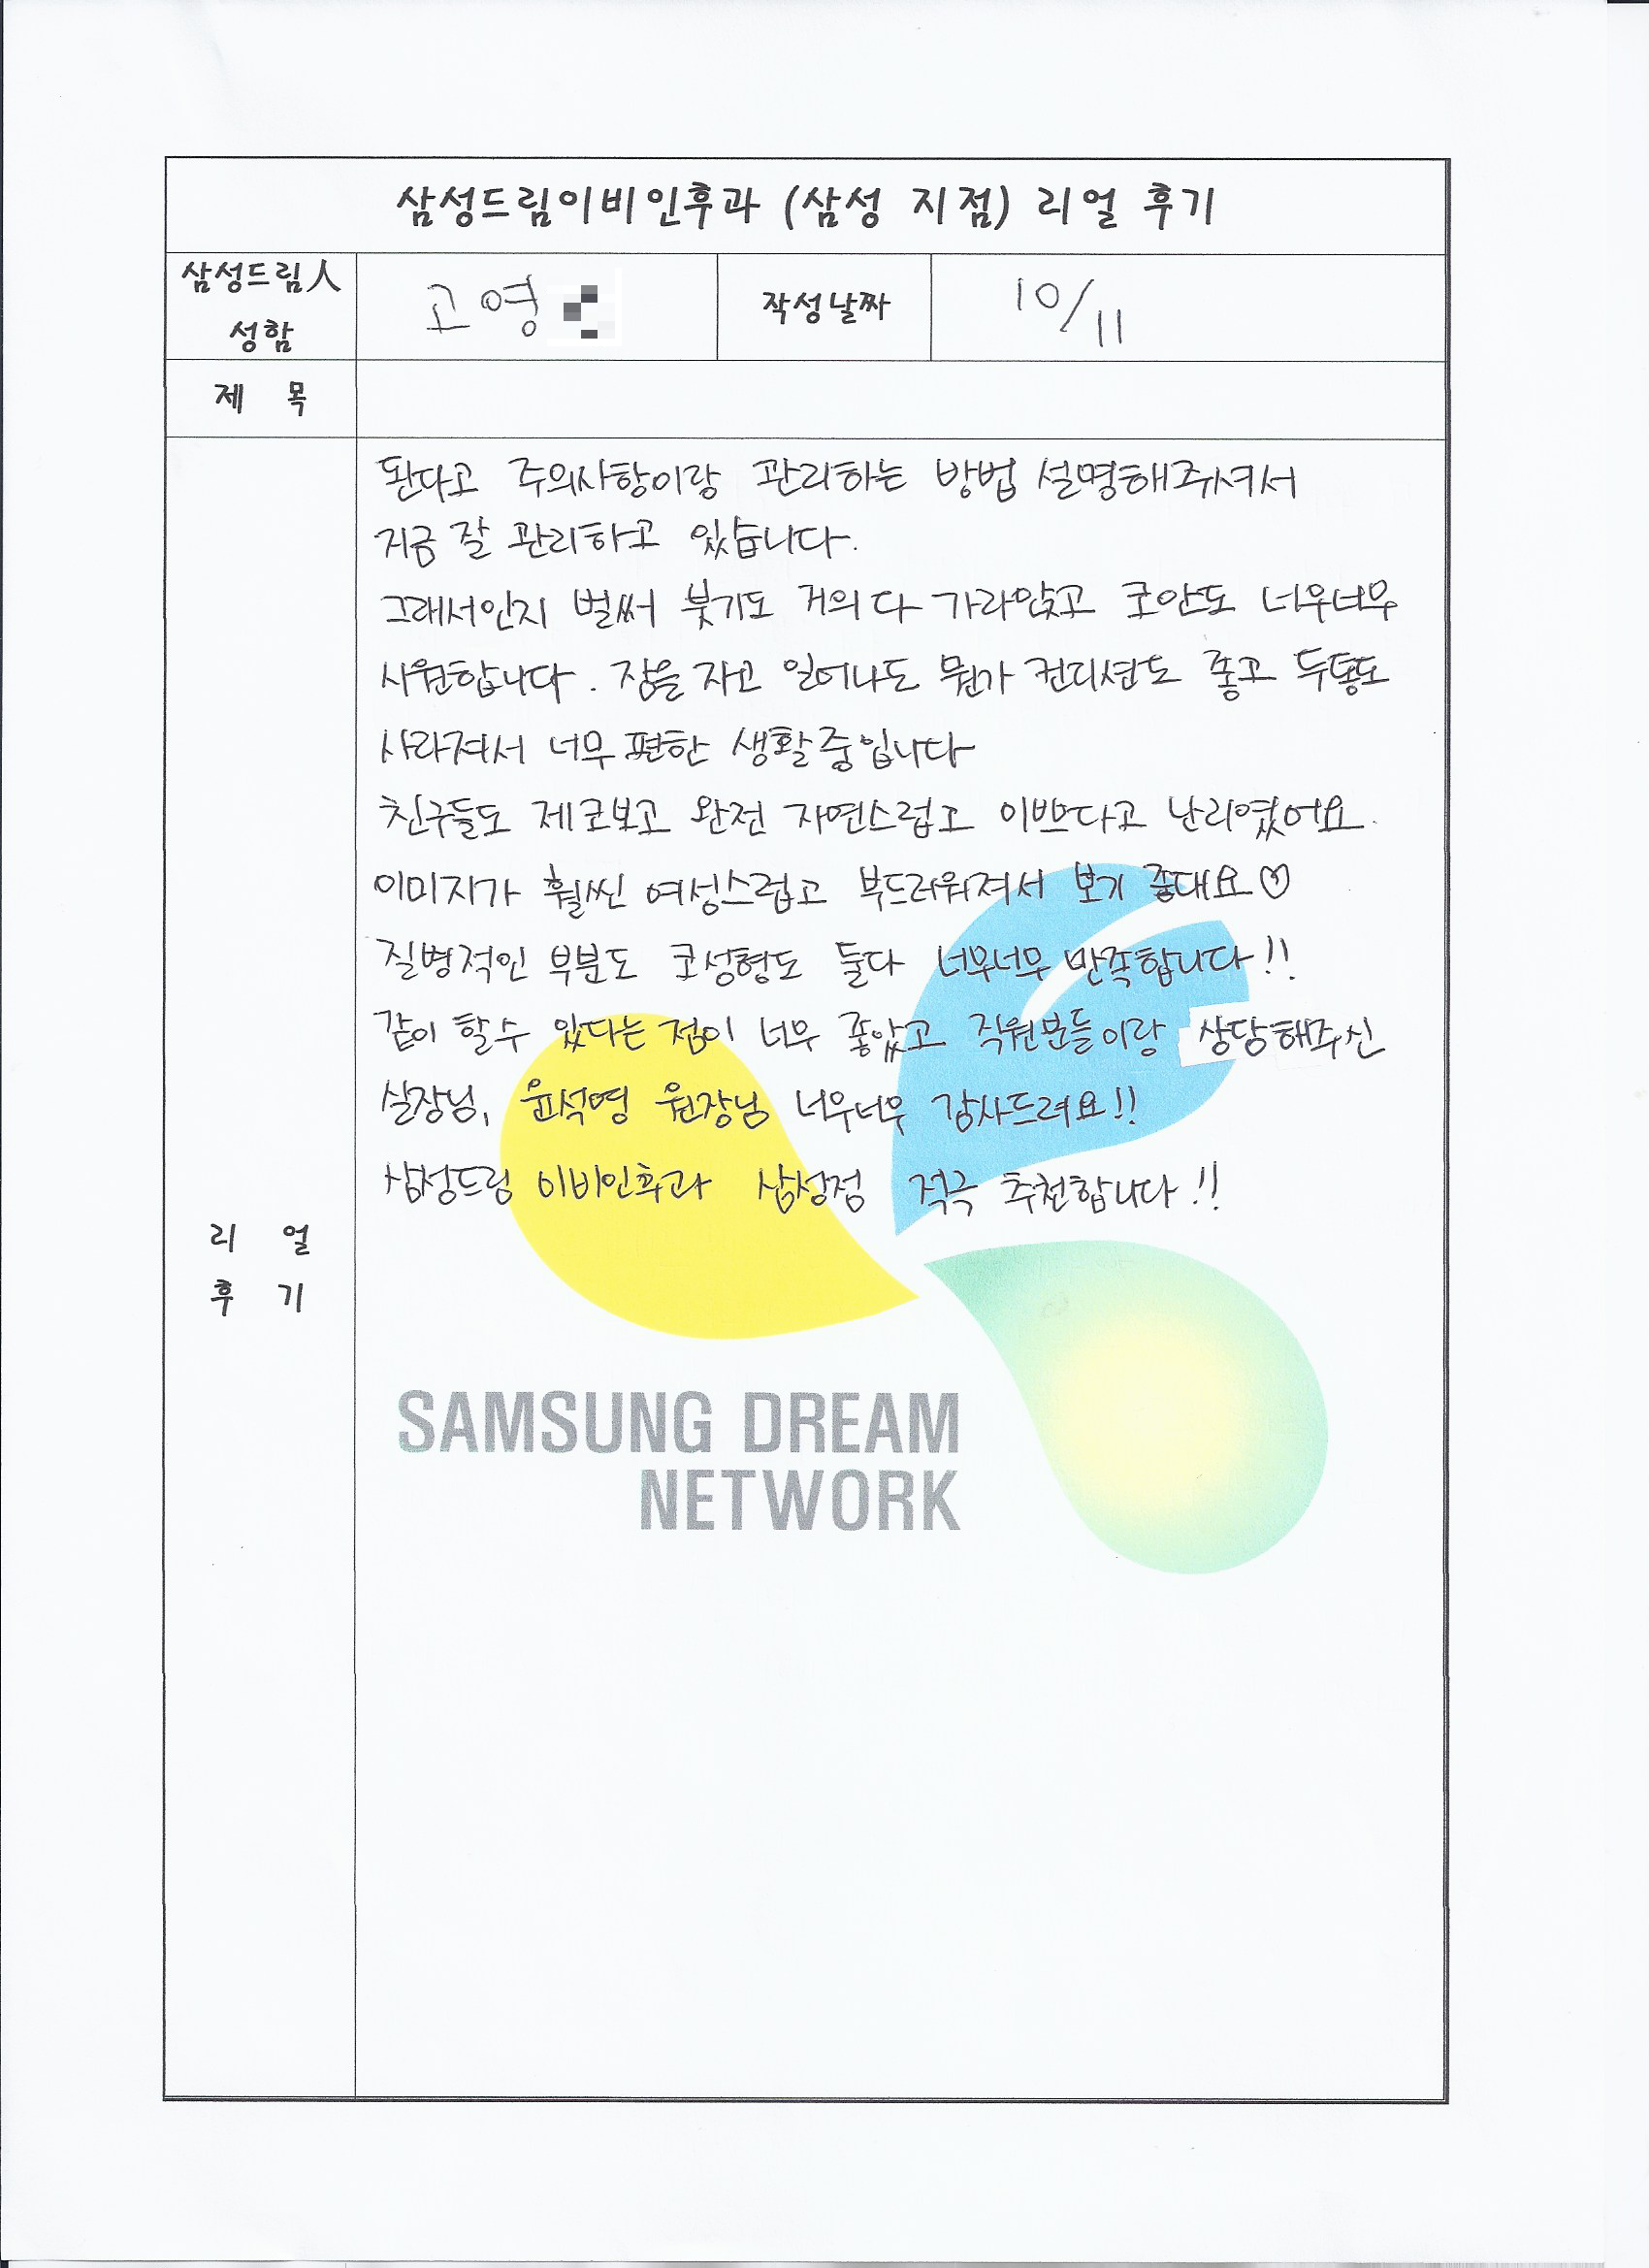 삼성드림이비인후과 (삼성 지점) 리얼 후기
삼성드림人 성함
고영
작성날짜
10/11
제 목
됀다고 주의사항이랑 관리하는 방법 설명해주셔서
지금 잘 관리하고 있습니다.
그래서인지 벌써 붓기도 거의 다 가라앉고 코안도 너무너무
시원합니다. 잠을 자고 일어나도 뭔가 컨디션도 좋고 두통도
사라져서 너무 편한 생활중입니다
친구들도 제코보고 완전 자연스럽고 이쁘다고 난리였어요.
이미지가 훨씬 여성스럽고 부드러워져서 보기 좋대요♡
질병적인 부분도 코성형도 둘다 너무너무 만족합니다!!
같이 할수 있다는 점이 너무 좋았고 직원분들이랑 상담해주신
실장님, 윤석영 원장님 너무너무 감사드려요!!
삼성드림 이비인후과 삼성점 적극 추천합니다!!
리 얼
후 기
SAMSUNG DREAM
NETWORK